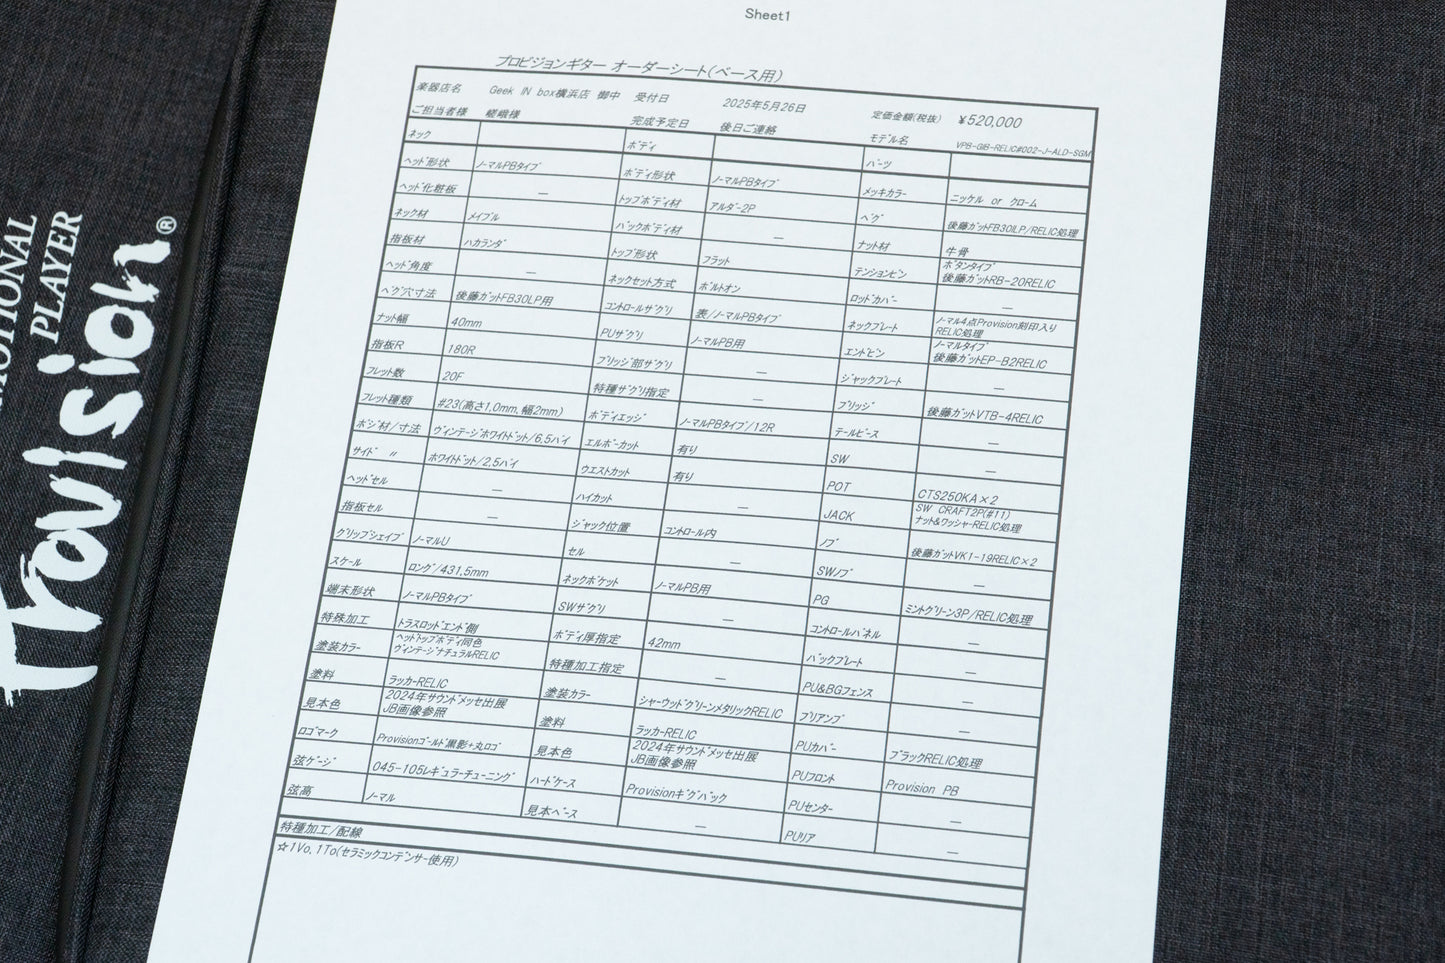 Sheet1
プロビジョンギター オーダーシート(ベース用)
楽器店名 Geek IN box横浜店 御中 受付日 2025年5月26日 定価金額(税抜) ¥520,000
ご担当者様 嵯峨様 完成予定日 後日ご連絡 モデル名 VPB-GIB-RELIC#002-J-ALD-SGM
ネック ボディ パーツ
ヘッド形状 ノーマルPBタイプ ボディ形状 ノーマルPBタイプ メッキカラー ニッケル or クローム
ヘッド化粧板 — トップボディ材 アルダー2P ペグ 後藤ガットFB30LP/RELIC処理
ネック材 メイプル バックボディ材 — ナット材 牛骨
指板材 ハカランダ トップ形状 フラット テンションピン ボタンタイプ
後藤ガットRB-20RELIC
ヘッド角度 — ネックセット方式 ボルトオン ロッドカバー —
ペグ穴寸法 後藤ガットFB30LP用 コントロールザグリ 表/ノーマルPBタイプ ネックプレート ノーマル4点Provision刻印入り
RELIC処理
ナット幅 40mm PUザグリ ノーマルPB用 エンドピン ノーマルタイプ
後藤ガットEP-B2RELIC
指板R 180R ブリッジ部ザグリ — ジャックプレート —
フレット数 20F 特種ザグリ指定 — ブリッジ 後藤ガットVTB-4RELIC
フレット種類 #23(高さ1.0mm,幅2mm) ボディエッジ ノーマルPBタイプ/12R テールピース —
ポジ材/寸法 ヴィンテージホワイトドット/6.5パイ エルボーカット 有り SW —
サイド 〃 ホワイトドット/2.5パイ ウエストカット 有り POT CTS250KA×2
ヘッドセル — ハイカット — JACK SW CRAFT2P(#11)
ナット&ワッシャーRELIC処理
指板セル — ジャック位置 コントロール内 ノブ 後藤ガットVK1-19RELIC×2
グリップシェイプ ノーマルU セル — SWノブ —
スケール ロング/431.5mm ネックポケット ノーマルPB用 PG ミントグリーン3P/RELIC処理
端末形状 ノーマルPBタイプ SWザグリ — コントロールパネル —
特殊加工 トラスロッドエンド側 ボディ厚指定 42mm バックプレート —
塗装カラー ヘッドトップボディ同色
ヴィンテージナチュラルRELIC 特種加工指定 — PU&BGフェンス —
塗料 ラッカーRELIC 塗装カラー シャーウッドグリーンメタリックRELIC プリアンプ —
見本色 2024年サウンドメッセ出展
JB画像参照 塗料 ラッカーRELIC PUカバー ブラックRELIC処理
ロゴマーク Provisionゴールド黒影+丸ロゴ 見本色 2024年サウンドメッセ出展
JB画像参照 PUフロント Provision PB
弦ゲージ 045-105レギュラーチューニング ハードケース Provisionギグバック PUセンター —
弦高 ノーマル 見本ベース — PUリア —
特種加工/配線
☆1Vo,1To(セラミックコンデンサー使用)
PLAYER
Provision®